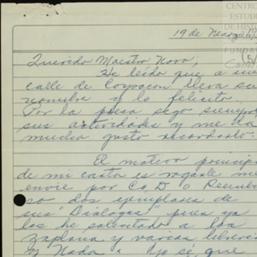 CENTRO
ESTUDI
DE HIST
19 de Marzo
Querido Maestro Novo,
He leído que a su
calle de Coyoacan lleva su
nombre y lo felicito.
Por la prensa sigo siempre
sus actividades y me da
mucho gusto recordarlo.
El motivo principal
de mi carta es rogarle me
envíe por C.O.D. o Reembol
so dos ejemplares de
sus "Dialogos" pues ya
los he solicitado a
Zaplana y varias librerias
y Nada. Yo se que